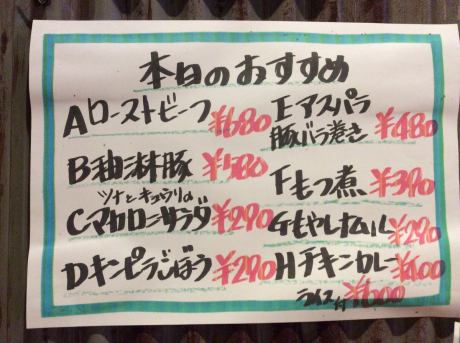 本日のおすすめ
Aローストビーフ ¥680
B秘伝豚 ¥580
ツナとキュウリの
Cマカロニサラダ ¥290
Dキンピラごぼう ¥290
Eアスパラ
豚バラ巻き ¥480
Fもつ煮 ¥390
Gもやしナムル ¥290
Hチキンカレー ¥400
ライス付 ¥600